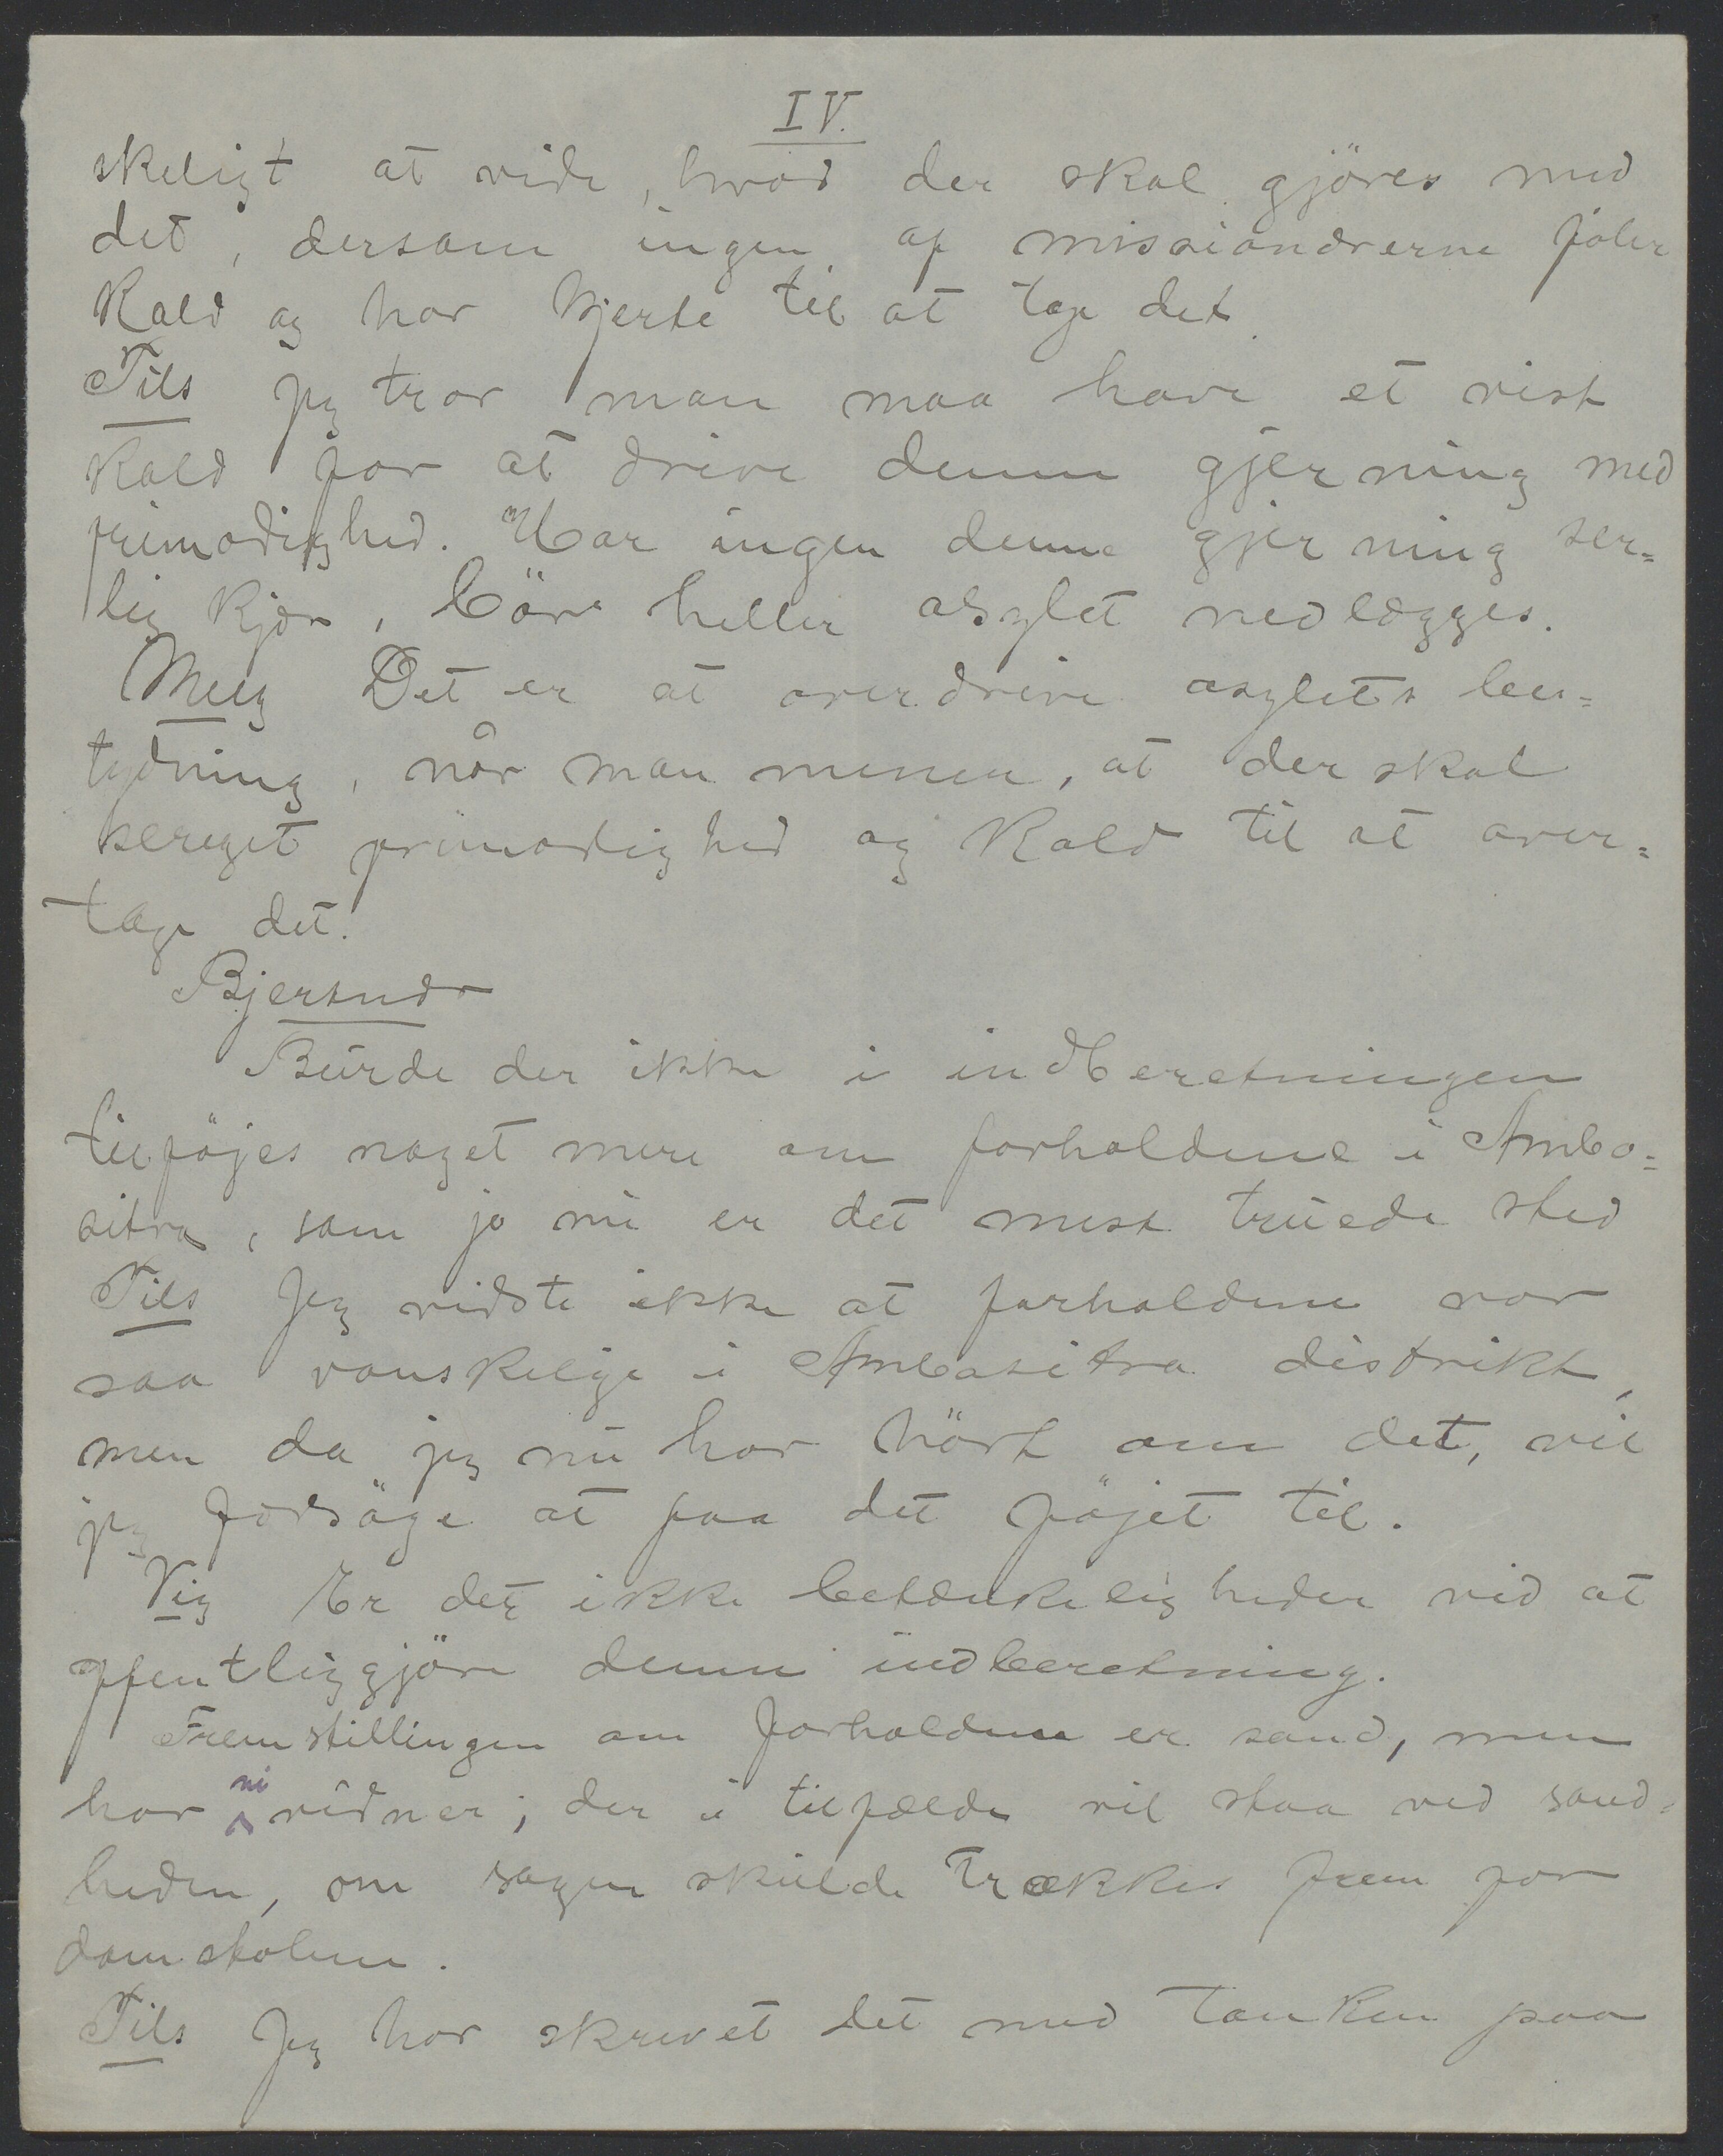 IV.
skeligt at vide, hvad der skal gjöres med
det, dersom ingen af missionærerne föler
Kald og har hjerte til at tage det.
Tils Jeg tror man maa have et vist
Kald for at drive denne gjerning med
frimodighed. Har ingen denne gjerning ser=
lig kjær, bör heller asylet nedlægges.
Meeg Det er at overdrive asylets be=
tydning, når man mener, at der skal
sereget frimodighed og Kald til at over=
tage det.
Bjersund
Burde der ikke i indberetningen
tilföjes noget mere om forholdene i Ambo=
sitra, som jo nu er det mest truede sted
Tils Jeg vidste ikke at forholdene var
saa vanskelige i Ambositra distrikt,
men da jeg nu har hört om det, vil
jeg forsöge at faa det föjet til.
Vig Er det ikke betænkeligheder ved at
offentliggjöre denne indberetning.
Fremstillingen om forholdene er sand, men
har ni vidner; der i tilfælde vil staa ved sand=
heden, om sagen skulde trækkes frem for
domstolene.
Tils Jeg har skrevet det med tanken paa